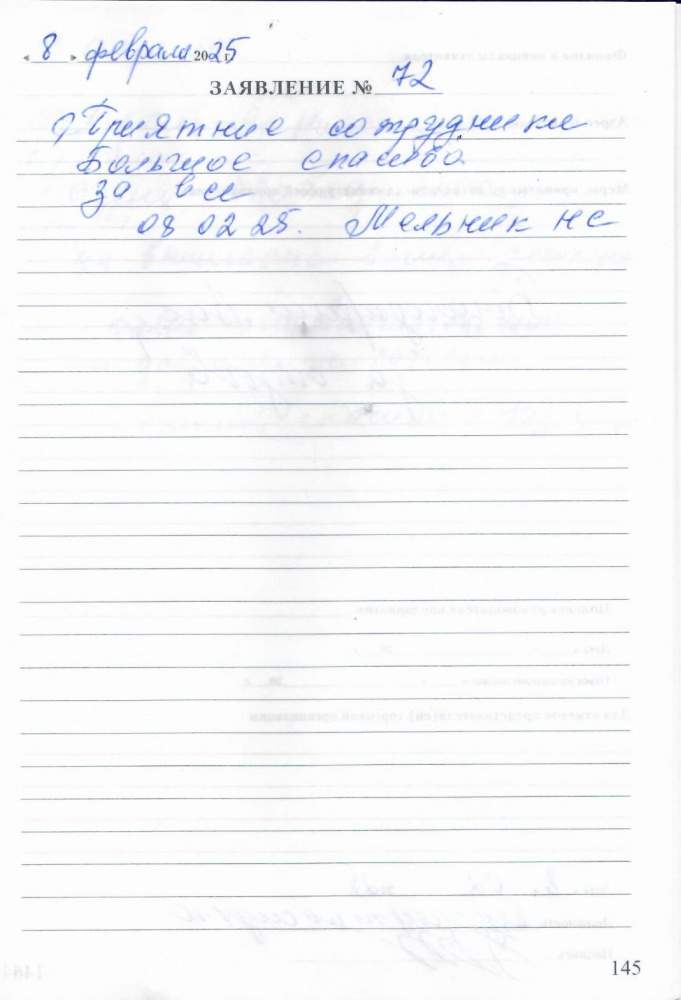 « 8 » февраля 2025 г.
ЗАЯВЛЕНИЕ № 72
Приятние сотрудники
Большое спасибо
за все
08 02 25. Мельник НС
145